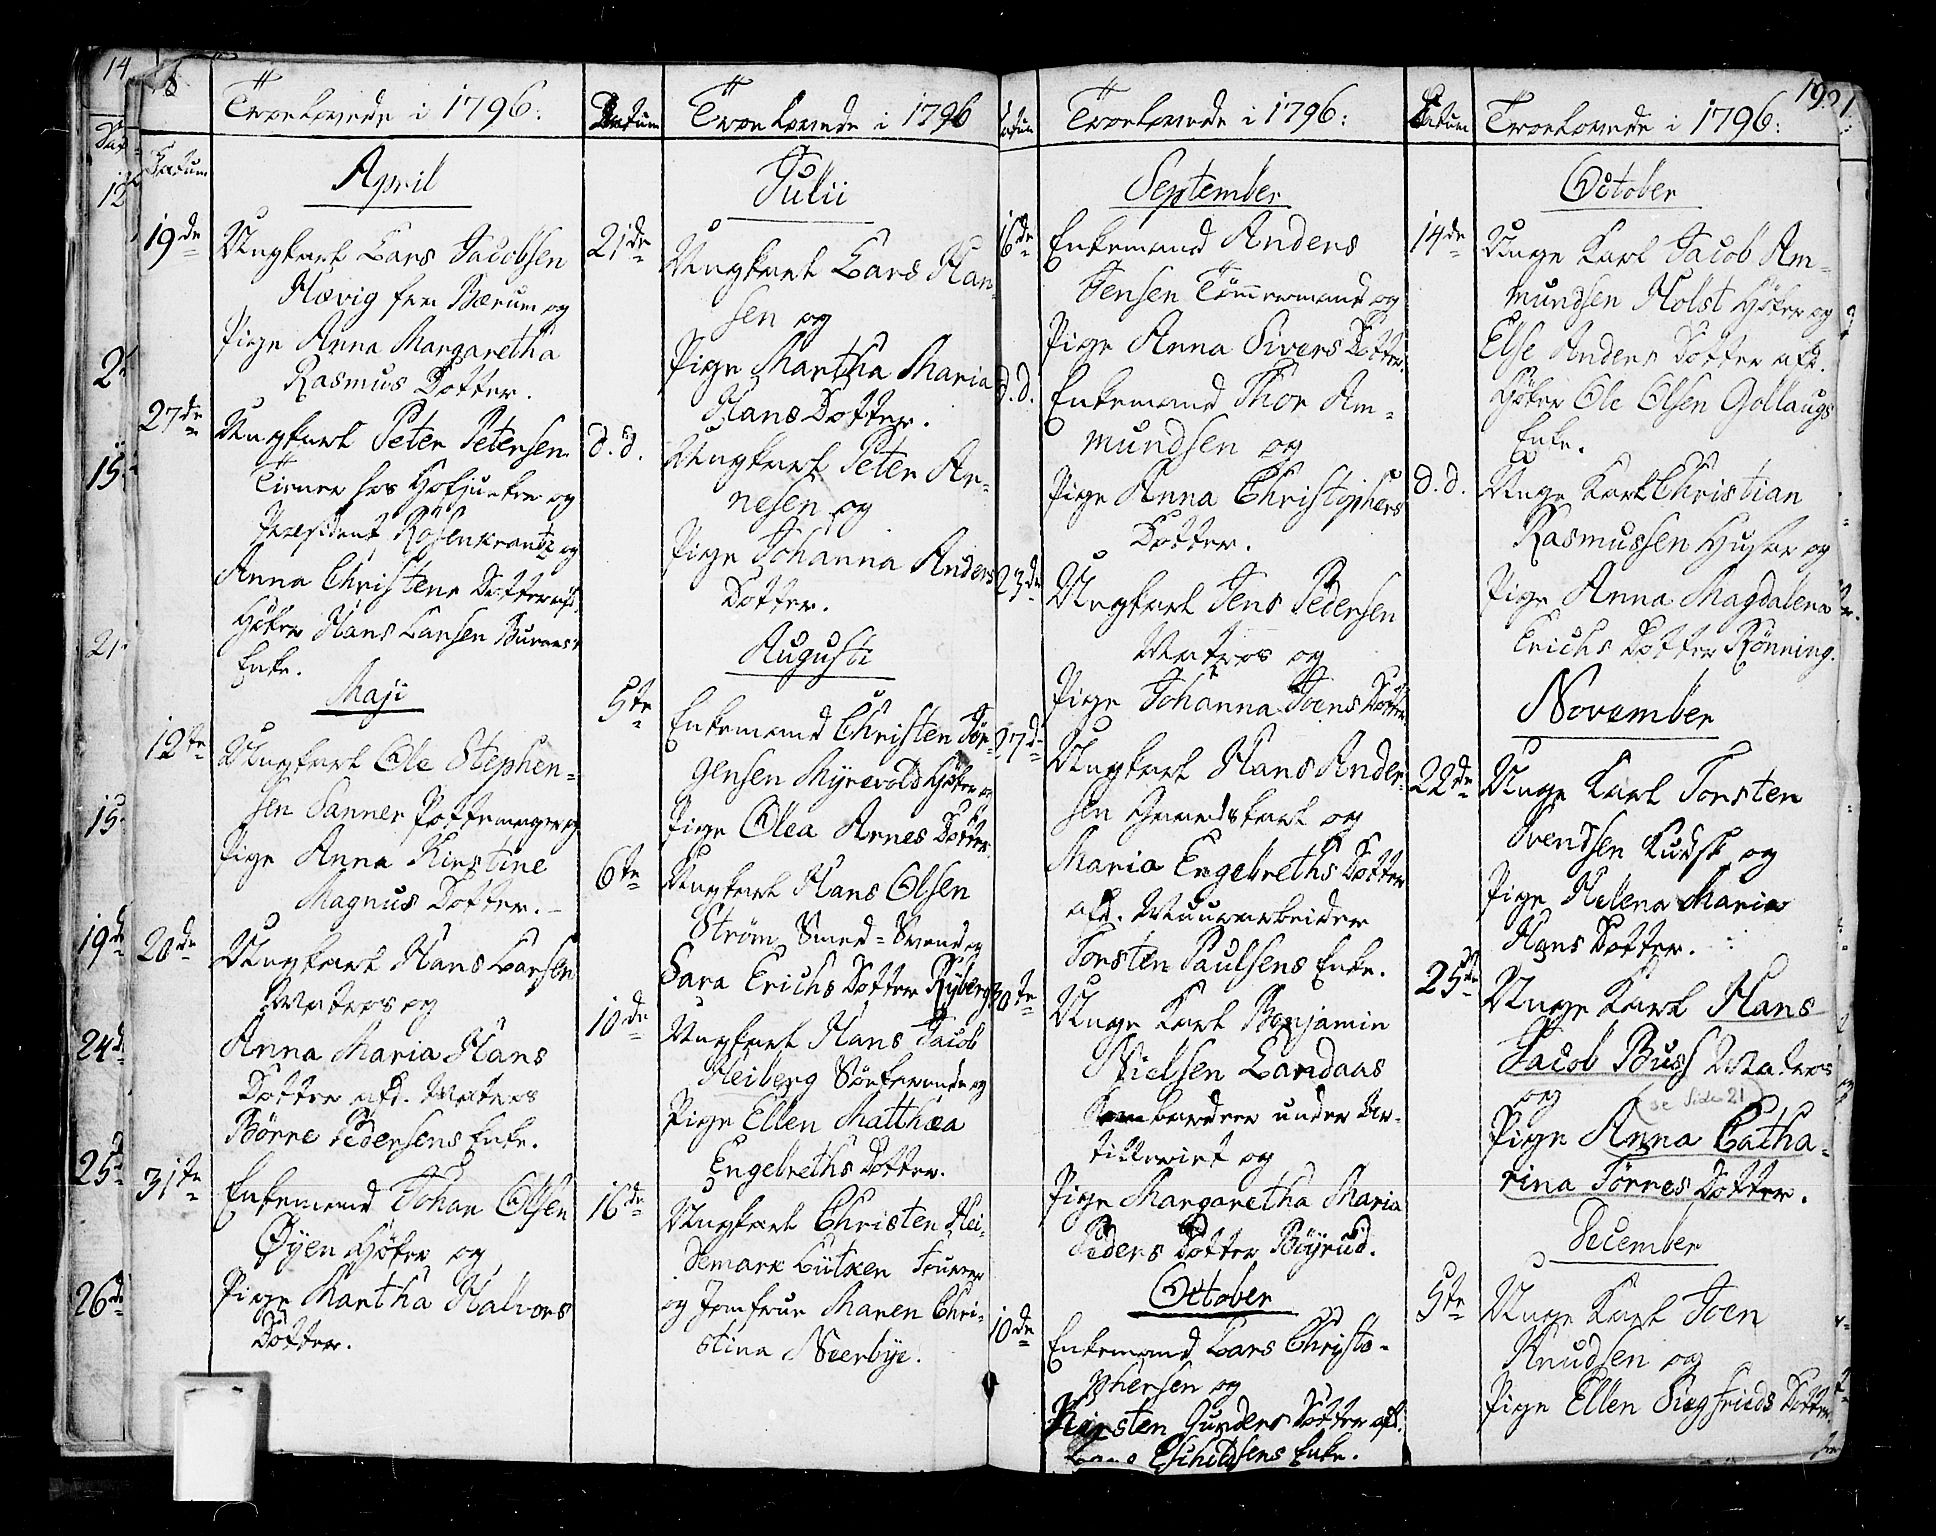 Troelovede i 1796:
Datum
April
19de
Ungkarl Lars Jacobsen
Hævig fra Bærum og
Pige Anna Margaretha
Rasmus Dotter.
27de
Ungkarl Peter Petersen
Tiener hos Hofjunker og
Præsident Rosenkrantz og
Anna Christens Dotter afd.
Høker Hans Larsen
Enke.
Maji
12te
Ungkarl Ole Stephen-
sen Sanner Pottemager og
Pige Anna Kirstine
Magnus Dotter.
20de
Ungkarl Hans Larsen
Matros og
Anna Maria Hans
Dotter afd. Matros
Børre Pedersens Enke.
31te
Enkemand Johan Olsen
Øyen Høker og
Pige Martha Halvors
Dotter.
Datum
Troelovede i 1796
Julii
21de
Ungkarl Lars Han-
sen og
Pige Martha Maria
Hans Dotter.
d. d.
Ungkarl Peter Ar-
nesen og
Pige Johanna Anders
Dotter.
Augusti
5te
Enkemand Christen Jør-
gensen Myrevold Høker og
Pige Olea Arnes Dotter.
6te
Ungkarl Hans Olsen
Strøm Smed-Svend og
Sara Erichs Dotter Ryberg
10de
Ungkarl Hans Jacob
Heiberg og
Pige Ellen Matthea
Engebreths Dotter.
16de
Ungkarl Christen Hei-
demark Lütken
og Jomfrue Maren Chri-
stina Neerbye.
Datum
Troelovede i 1796:
September
16de
Enkemand Anders
Jensen Tømmermand og
Pige Anna Sivers Dotter.
d. d.
Enkemand Thor Am-
mundsen og
Pige Anna Christophers
Dotter.
23de
Ungkarl Jens Pedersen
Matros og
Pige Johanna Joens Dotter
27de
Ungkarl Hans Ander-
sen Gaardskarl og
Maria Engebreths Dotter
afd. Muurarbeider
Torsten Paulsens Enke.
30te
Unge Karl Benjamin
Nielsen Landaas
under Ar-
tilleriet og
Pige Margaretha Maria
Peders Dotter Bøyrud.
October
10de
Enkemand Lars Christo-
phersen og
Kirsten Gunders Dotter afd.
Eschildsens Enke.
Datum
Troelovede i 1796:
19.
October
14de
Unge Karl Jacob Am-
mundsen Holst Høker og
Else Anders Dotter afd.
Høker Ole Olsen Gollaugs
Enke.
d. d.
Unge Karl Christian
Rasmussen Husar og
Pige Anna Magdalena
Erichs Dotter Rønning.
November
22de
Unge Karl Torsten
Svendsen Kudsk og
Pige Helena Maria
Hans Dotter.
25de
Unge Karl Hans
Jacob Buss Matros
og
se Side 21
Pige Anna Catha-
rina Tørres Dotter.
December
5te
Unge Karl Joen
Knudsen og
Pige Ellen Siegfrieds Dotter
14
12
2
15
21
15
19de
24d
25d
26de